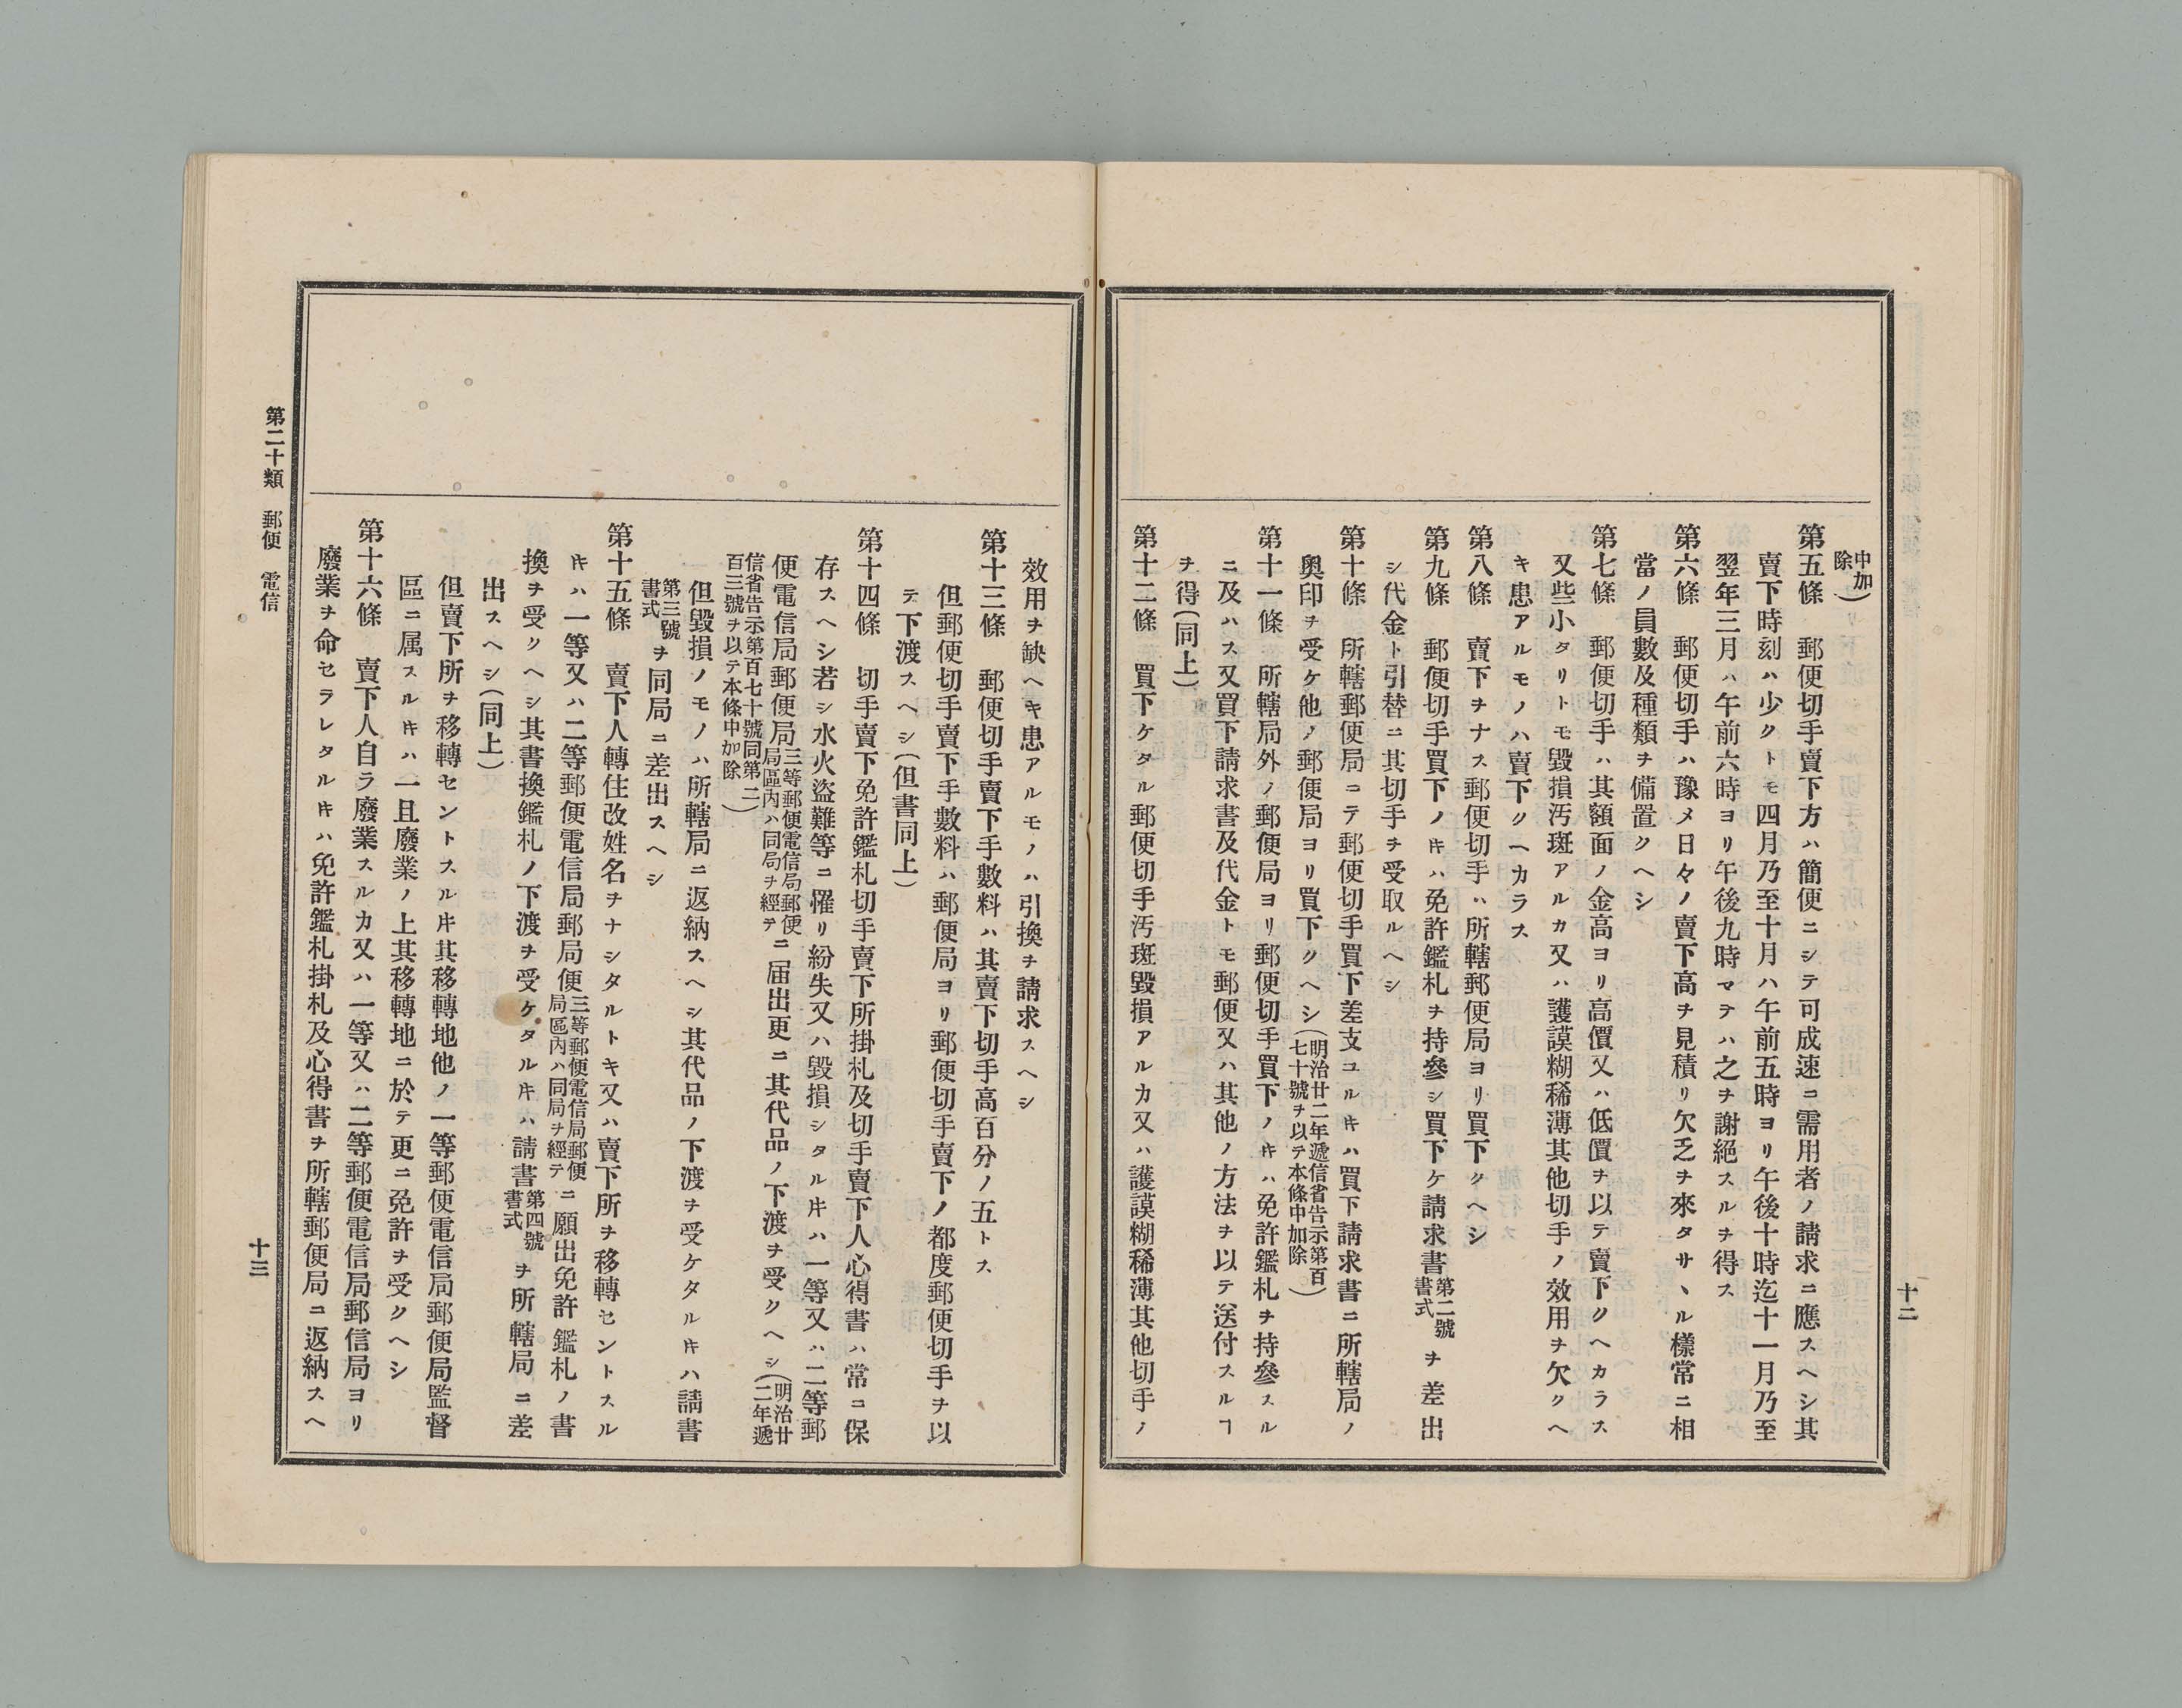 中加除)
第五條　郵便切手賣下方ハ簡便ニシテ可成速ニ需用者ノ請求ニ應スヘシ其
賣下時刻ハ少クトモ四月乃至十月ハ午前五時ヨリ午後十時迄十一月乃至
翌年三月ハ午前六時ヨリ午後九時マテハ之ヲ謝絕スルヲ得ス
第六條　郵便切手ハ豫メ日々ノ賣下高ヲ見積リ欠乏ヲ來タサヽル樣常ニ相
當ノ員數及種類ヲ備置クヘシ
第七條　郵便切手ハ其額面ノ金高ヨリ高價又ハ低價ヲ以テ賣下クヘカラス
又些小タリトモ毀損汚斑アルカ又ハ護謨糊稀薄其他切手ノ效用ヲ欠クヘ
キ患アルモノハ賣下クヘカラス
第八條　賣下ヲナス郵便切手ハ所轄郵便局ヨリ買下クヘシ
第九條　郵便切手買下ノキハ免許鑑札ヲ持參シ買下ケ請求書第二號書式ヲ差出
シ代金ト引替ニ其切手ヲ受取ルヘシ
第十條　所轄郵便局ニテ郵便切手買下差支ユルキハ買下請求書ニ所轄局ノ
奧印ヲ受ケ他ノ郵便局ヨリ買下クヘシ(明治廿二年遞信省告示第百七十號ヲ以テ本條中加除)
第十一條　所轄局外ノ郵便局ヨリ郵便切手買下ノキハ免許鑑札ヲ持參スル
ニ及ハス又買下請求書及代金トモ郵便又ハ其他ノ方法ヲ以テ送付スルヿ
ヲ得(同上)
第十二條　買下ケタル郵便切手汚斑毀損アルカ又ハ護謨糊稀薄其他切手ノ
十二
效用ヲ缺ヘキ患アルモノハ引換ヲ請求スヘシ
第十三條　郵便切手賣下手數料ハ其賣下切手高百分ノ五トス
但郵便切手賣下手數料ハ郵便局ヨリ郵便切手賣下ノ都度郵便切手ヲ以
テ下渡スヘシ(但書同上)
第十四條　切手賣下免許鑑札切手賣下所掛札及切手賣下人心得書ハ常ニ保
存スヘシ若シ水火盜難等ニ罹リ紛失又ハ毀損シタルキハ一等又ハ二等郵
便電信局郵便局三等郵便電信局郵便局區內ハ同局ヲ經テニ届出更ニ其代品ノ下渡ヲ受クヘシ(明治廿二年遞
信省告示第百七十號同第二百三號ヲ以テ本條中加除)
但毀損ノモノハ所轄局ニ返納スヘシ其代品ノ下渡ヲ受ケタルキハ請書
第三號書式ヲ同局ニ差出スヘシ
第十五條　賣下人轉住改姓名ヲナシタルトキ又ハ賣下所ヲ移轉セントスル
キハ一等又ハ二等郵便電信局郵局便三等郵便電信局郵便局區內ハ同局ヲ經テニ願出免許鑑札ノ書
換ヲ受クヘシ其書換鑑札ノ下渡ヲ受ケタルキハ請書第四號書式ヲ所轄局ニ差
出スヘシ(同上)
但賣下所ヲ移轉セントスルキ其移轉地他ノ一等郵便電信局郵便局監督
區ニ属スルキハ一且廢業ノ上其移轉地ニ於テ更ニ免許ヲ受クヘシ
第十六條　賣下人自ラ廢業スルカ又ハ一等又ハ二等郵便電信局郵信局ヨリ
廢業ヲ命セラレタルキハ免許鑑札掛札及心得書ヲ所轄郵便局ニ返納スヘ
第二十類　郵便　電信
十三